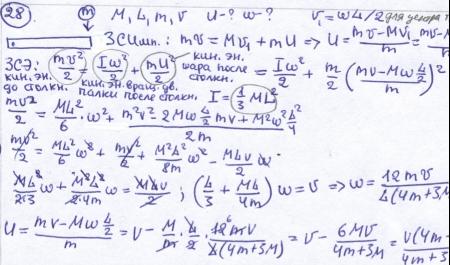 28 m M, L, m, v U-? ω-? v₁ = ωL/2 для центра
ЗСИмп.: mv = Mv₁ + mU ⇒ U = (mv - Mv₁)/m = mv - M
ЗСЭ: mv²/2 = Iω²/2 + mU²/2 = Iω²/2 + m/2 ((mv - Mω L/2)/m)²
кин. эн. до столкн. кин. эн. вращ. дв. палки после столкн. кин. эн. шара после столкн. I = 1/3 ML²
mv²/2 = ML²/6 · ω² + (m²v² - 2Mω L/2 mv + M²ω² L²/4)/2m
mv²/2 = ML²/6 ω² + mv²/2 + M²L²/8m ω² - MLv/2 ω
ML²/2·3 ω + M²L²/2·4m ω = MLv/2 ; (L/3 + ML/4m) ω = v ⇒ ω = 12mv/L(4m+3M)
U = (mv - Mω L/2)/m = v - M/m · L/2 · 12mv/L(4m+3M) = v - 6Mv/(4m+3M) = v(4m-